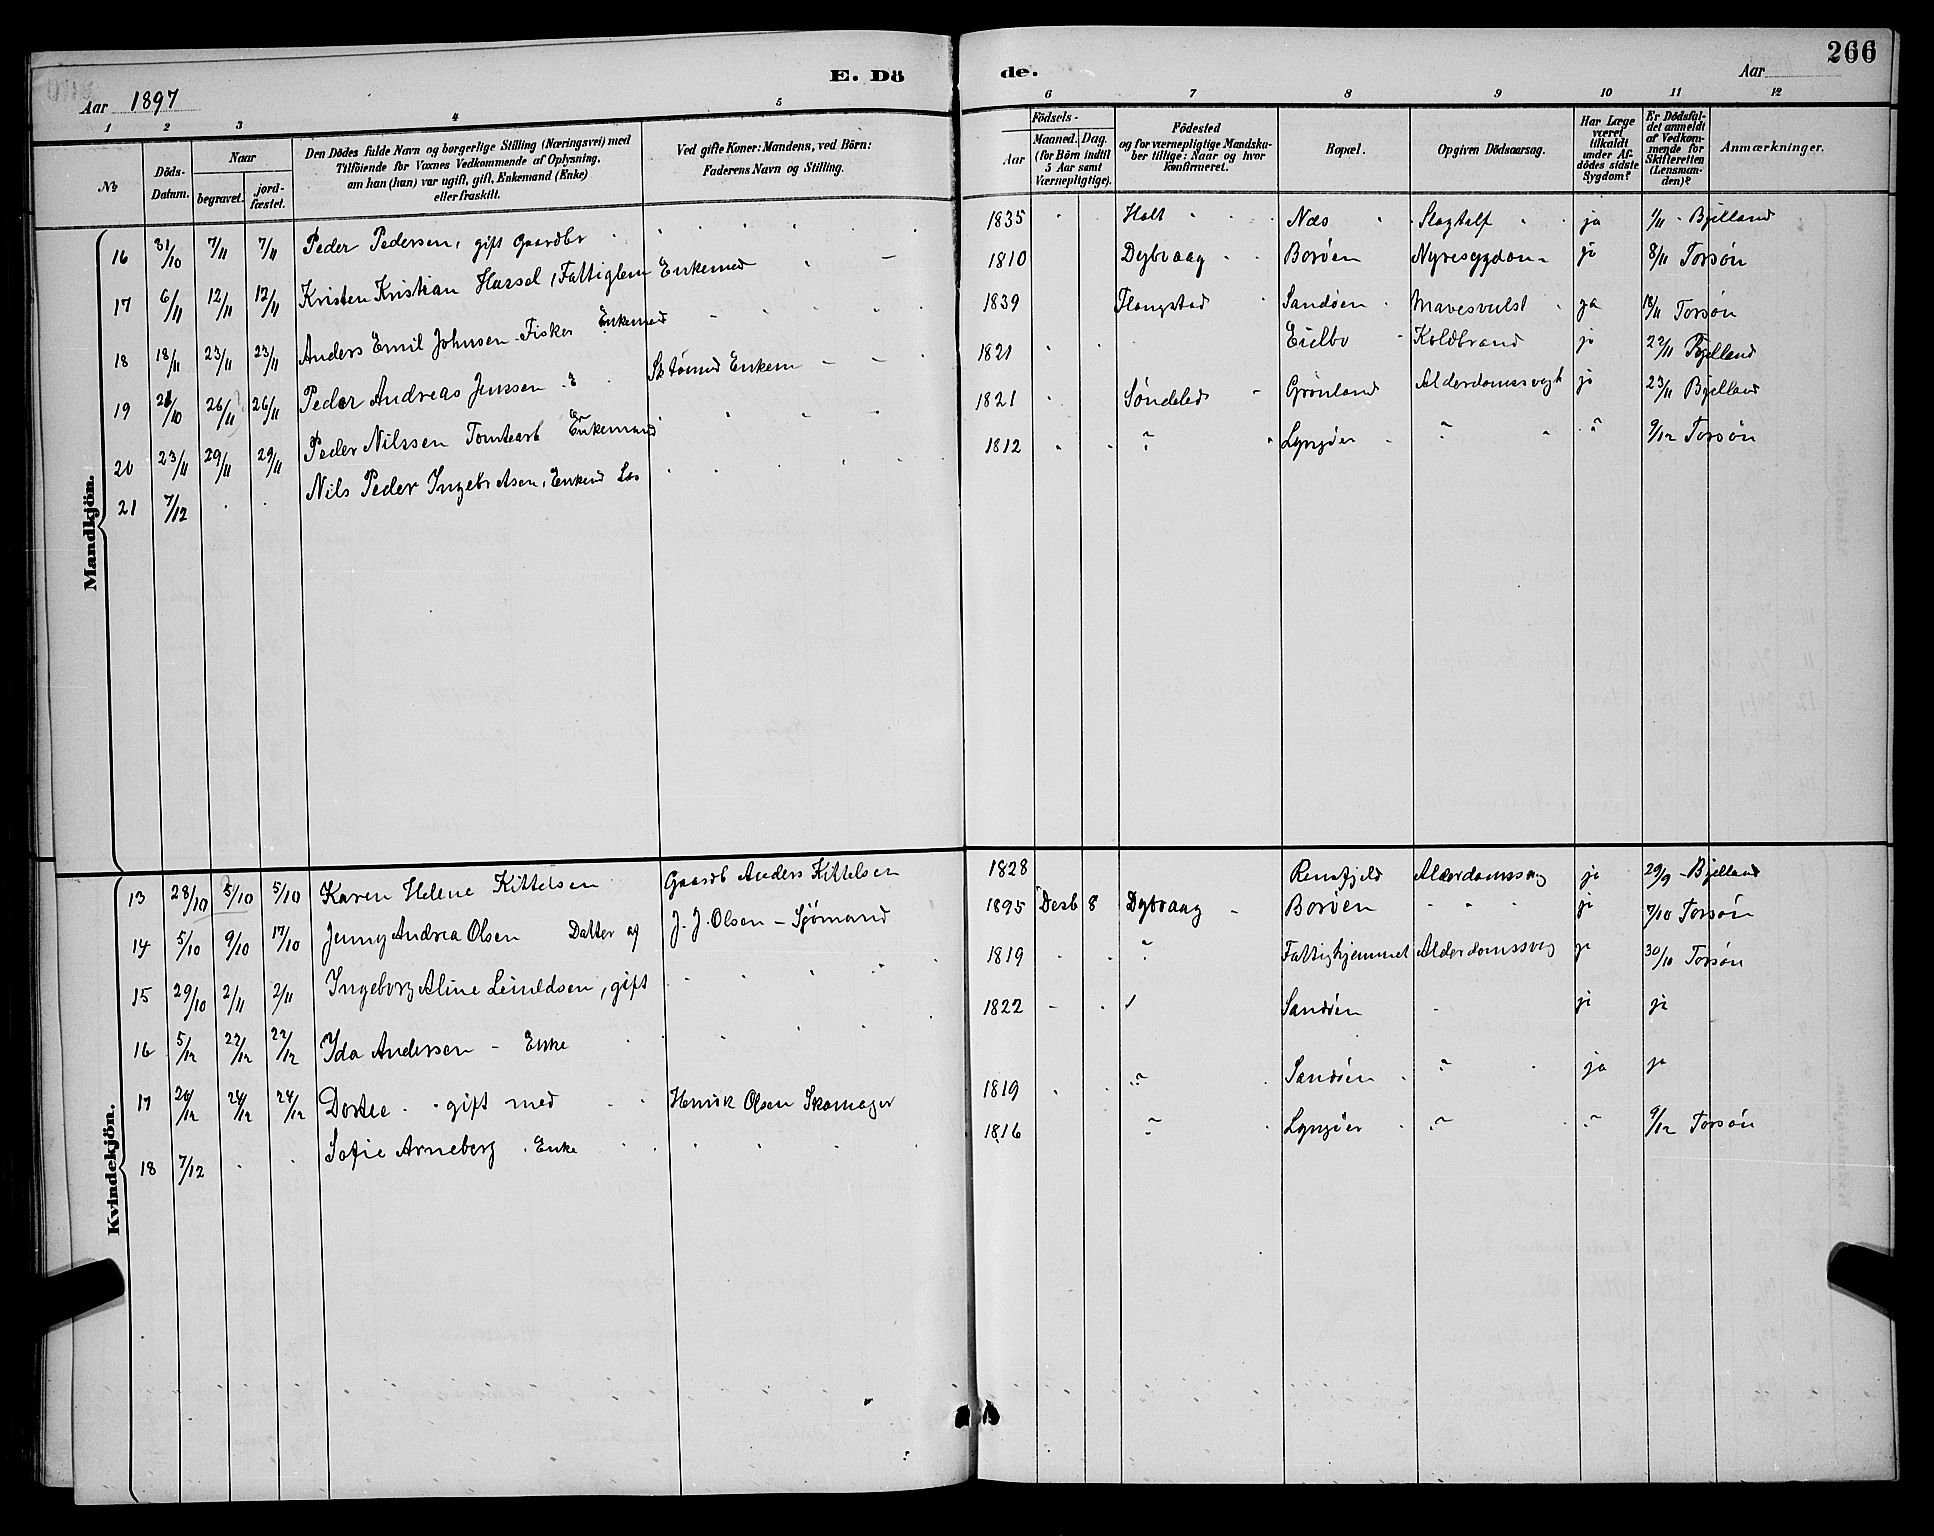 266
E. Dö de.
Aar 1897 Aar
1 2 3 4 5 6 7 8 9 10 11 12
No Döds-Datum. Naar begravet. jord-fæstet. Den Dödes fulde Navn og borgerlige Stilling (Næringsvei) med Tilföiende for Voxnes Vedkommende af Oplysning, om han (hun) var ugift, gift, Enkemand (Enke) eller fraskilt. Ved gifte Koner: Mandens, ved Börn: Faderens Navn og Stilling. Födsels- Aar Maaned. Dag. (for Börn indtil 5 Aar samt Værnepligtige). Födested og for værnepligtige Mandskaber tillige: Naar og hvor konfirmeret. Bopæl. Opgiven Dödsaarsag. Har Læge været tilkaldt under Afdödes sidste Sygdom? Er Dödsfaldet anmeldt af Vedkommende for Skifteretten (Lensmanden)? Anmærkninger.
Mandkjön.
16 31/10 7/11 7/11 Peder Pedersen, gift Gaardbr 1835 Holt Næs Slagtilf ja 1/11 Bjelland
17 6/11 12/11 12/11 Kristen Kristian Hassel, Fattiglem Enkemed 1810 Dybvaag Borøen Nyresygdom ja 8/11 Torsøn
18 18/11 23/11 23/11 Anders Emil Johnsen Fisker Enkemed 1839 Flangstad Sandøen Mavesvulst ja 18/11 Torsøn
19 26/11 26/11 Peder Andreas Jenssen Enkem 1821 Eielbo Koldbrand ja 22/11 Bjelland
20 23/11 29/11 29/11 Peder Nilssen Tomtearb Enkemand 1821 Søndeled Grønland Alderdomssvagh ja 23/11 Bjelland
21 7/12 Nils Peder Ingebretsen, Enkmd Los 1812 " Lyngøer " " 9/12 Torsøn
Kvindekjön.
13 28/10 5/10 5/10 Karen Helene Kittelsen Gaardb Anders Kittelsen 1828 Rensfjeld Alderdomssvag ja 29/9 Bjelland
14 5/10 9/10 17/10 Jenny Andrea Olsen Datter af J. J. Olsen - Sjømand 1895 Desb 8 Dybvaag Borøen " ja 7/10 Torsøn
15 29/10 2/11 2/11 Ingeborg Aline Leinldsen, gift 1819 " Fattighjemmet Alderdomssvag ja 30/10 Torsøn
16 5/12 22/12 22/12 Ida Andersen - Enke 1822 Sandøen ja ja
17 20/12 24/12 24/12 Dortee gift med Henrik Olsen Skomager 1819 " Sandøen " ja ja
18 7/12 Sofie Arneberg Enke 1816 " Lyngøer " " 9/12 Torsøn